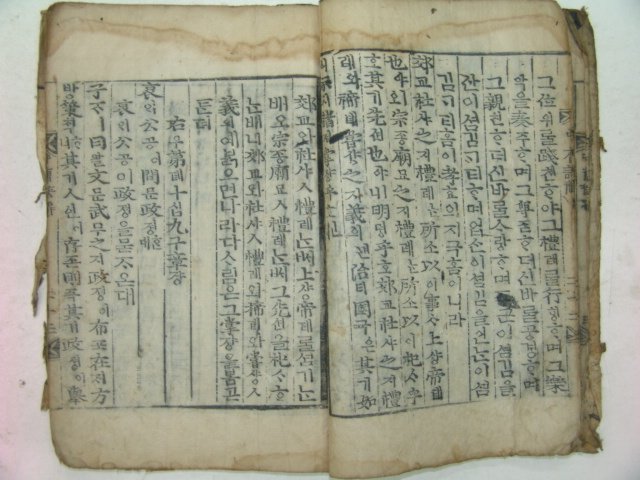 그位위ᄅᆞᆯ踐쳔ᄒᆞ야그禮례ᄅᆞᆯ行ᄒᆡᆼᄒᆞ며그樂
악을奏주ᄒᆞ며그尊존ᄒᆞ던바ᄅᆞᆯ공경ᄒᆞ며
그親친ᄒᆞ던바ᄅᆞᆯᄉᆞ랑ᄒᆞ며 셤김을
셤김 티ᄒᆞ며업슨이셤김을인ᄂᆞᆫ이셤
김ᄀᆞ티홈이孝효의지극홈이니라
郊교社샤之지禮례ᄂᆞᆫ所소以이事ᄉᆞ上샹帝뎨
也야오宗종廟묘之지禮례ᄂᆞᆫ所소以이祀ᄉᆞ乎
호其기先션也야니明명乎호郊교社샤之지禮
례와禘톄嘗샹之지義의면治티國국은其기如
郊교와社샤ㅅ禮례ᄂᆞᆫᄡᅥ上샹帝뎨ᄅᆞᆯ셤기ᄂᆞᆫ
배오宗종廟묘ㅅ禮례ᄂᆞᆫᄡᅥ그先션을祀ᄉᆞᄒᆞ
ᄂᆞᆫ배니郊교와社샤ㅅ禮례와禘톄와嘗샹ㅅ
義의예ᄇᆞᆰ으면나라다ᄉᆞ림은그掌쟝을봄ᄀᆞᆮ
ᄐᆞᆫ뎌
右우第뎨十십九구章쟝
哀ᄋᆡ公공이問문政졍ᄒᆞᆫ대
哀ᄋᆡ公공이政졍을묻ᄌᆞ온대
子ᄌᆞㅣᄀᆞᆯ文문武무之지政졍이布포在ᄌᆡ方
방策ᄎᆡᆨᄒᆞ니其기人인이存존則즉其기政졍이擧